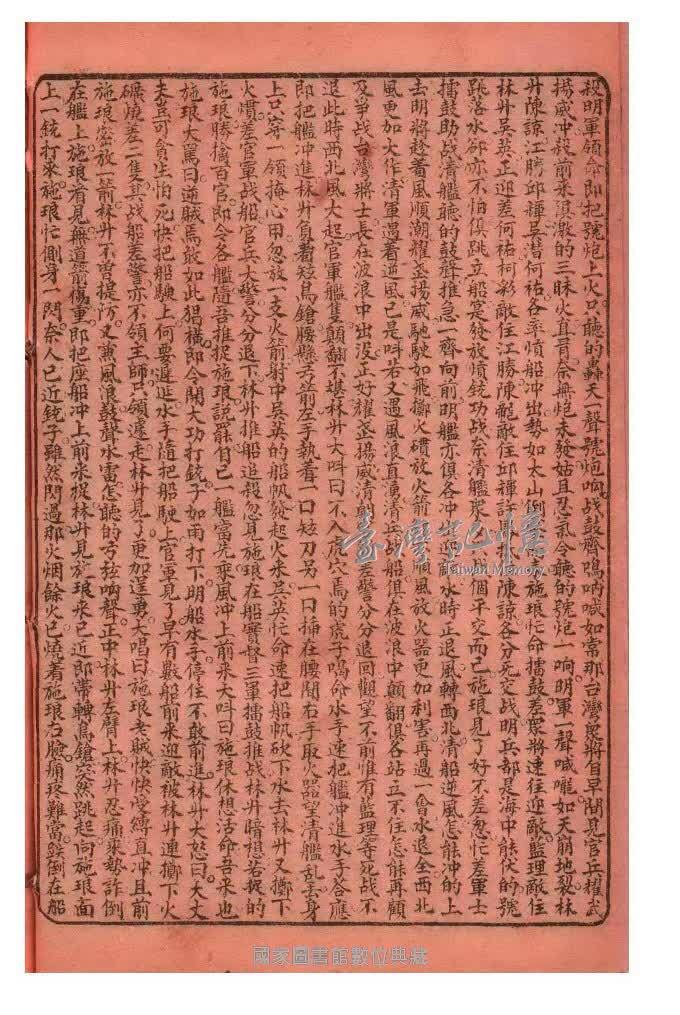 殺明軍領命即把號炮上火只聽的轟天一聲號炮响战鼓齊鳴吶喊如常那台灣眾將自早間見官兵耀武
揚威冲殺前來俱激的三昧火直冒奈無炮未發姑且忍氣今聽的號炮一响明軍一聲喊嚨如天崩地裂林
升陳諒江勝邱輝吳潛何祐各率熕船冲出勢如太山倒 施琅忙命擂鼓差眾將速往迎敵藍理敵住
林升吳英正迎差何祐柯彩敵住江勝陳龍敵住邱輝 陳諒各分死交战明兵都是海中能伏的號
跳落水卻亦不怕俱跳立船定發放熕銃功战奈清艦眾 個平交而已施琅見了好不差忿忙差軍士
擂鼓助战清艦聽的鼓聲推急一齊向前明艦亦俱各冲 迎敵水時正退風轉西北清船逆風怎能冲的上
去明將趁着風順潮耀武揚威馳駛如飛擲火礶放火箭 順風放火器更加利害再過一會水退全西北
風更加大作清軍遇着逆風已是叫若又遇風浪直湧清兵 船俱在波浪中顛翻俱各站立不住怎能再顧
及爭战台灣將士長在波浪中出没正好耀武揚威清船 差警分分退回觀望不前惟有藍理等死战不
退此時西北風大起官軍艦隻顛翻不堪林升大呌曰不入虎穴焉的虎子喝命水手速把艦冲進水手答應
即把艦冲進林升負着短鳥鎗腰懸 箭左手執着一口短刀另一口揷在腰間右手取火器望清艦亂丢身
上只穿一領掩心甲忽放一支火箭射中吳英的船帆發起火來吳英忙命速把船帆砍下水去林升又擲下
火礶差官軍战船官兵大警分分退下林升推船追殺忽見施琅在船響督三軍擂鼓推战林升暗想若捉的
施琅勝擒百官即令各艦隨吾推捉施琅説罷自已一艦當先乘風冲上前來大呌曰施琅休想活命吾來也
施琅大罵曰逆賊焉敢如此猖橫即令開大功打銃子如雨打下明船水手停住不敢前進林升大怒曰大丈
夫豈可貪生怕死快把船駛上何要遲進水手隨把船駛上官軍見了早有數船前來迎敵被林升連擲下火
礶燒差二隻其战船差警亦不領主師只領邊走林升見了更加逞勇大唱曰施琅老賊快快受縛直冲且前
施琅密放一箭林升不曾提防又兼風浪鼓聲水雷怎聽的弓弦响聲正中林升左臂上林升忍痛乘勢詐倒
在艦上施琅看見無道箭傷重即把座船冲上前來捉林升見施琅來已近即帶轉鳥鎗突然跳起向施琅面
上一銃打來施琅忙側身一閃奈人已近銃子雖然閃過那火烟餘火已燒着施琅右臉痛疼難當跌倒在船
臺灣記憶
Taiwan Memory
國家圖書館數位典藏